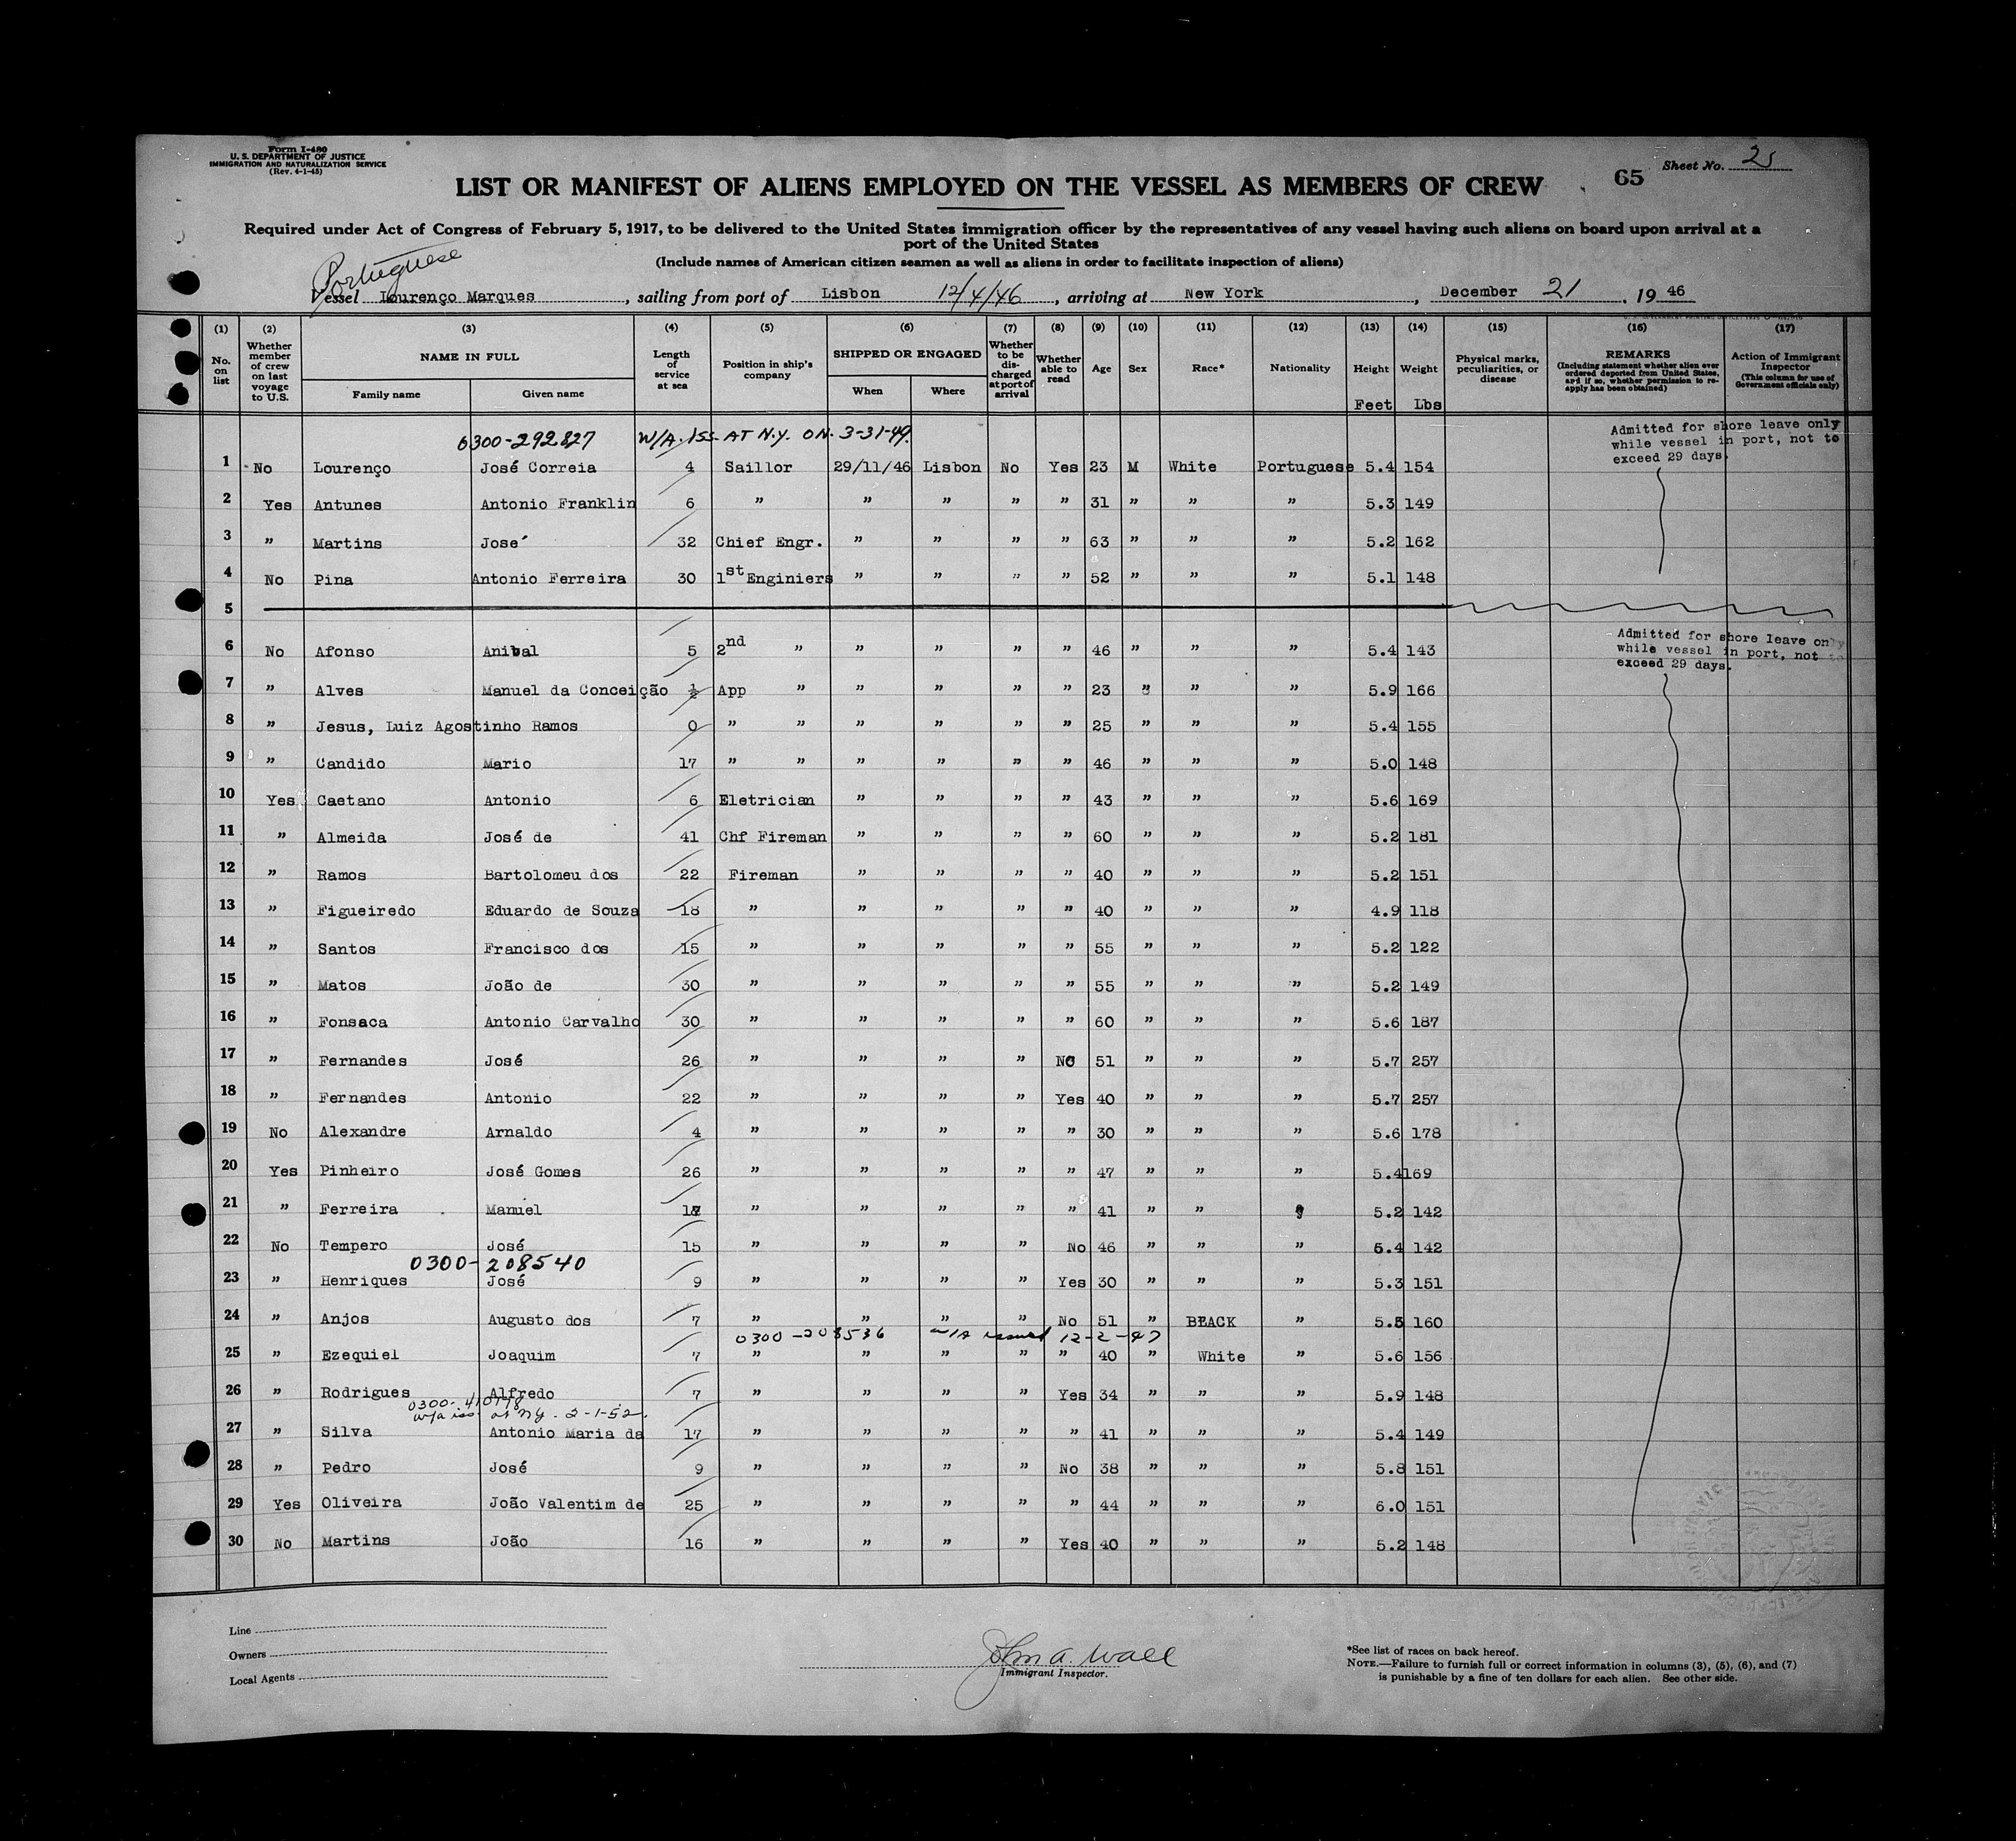 Form I-480
U. S. DEPARTMENT OF JUSTICE
IMMIGRATION AND NATURALIZATION SERVICE
(Rev. 4-1-45)
65 Sheet No. 25
LIST OR MANIFEST OF ALIENS EMPLOYED ON THE VESSEL AS MEMBERS OF CREW
Required under Act of Congress of February 5, 1917, to be delivered to the United States immigration officer by the representatives of any vessel having such aliens on board upon arrival at a
port of the United States
(Include names of American citizen seamen as well as aliens in order to facilitate inspection of aliens)
Portuguese
Vessel Lourenço Marques, sailing from port of Lisbon 12/4/46, arriving at New York, December 21, 1946
(1) (2) (3) (4) (5) (6) (7) (8) (9) (10) (11) (12) (13) (14) (15) (16) (17)
No. on list
Whether member of crew on last voyage to U.S.
NAME IN FULL
Family name Given name
Length of service at sea
Position in ship's company
SHIPPED OR ENGAGED
When Where
Whether to be discharged at port of arrival
Whether able to read
Age Sex Race* Nationality
Height Feet
Weight Lbs
Physical marks, peculiarities, or disease
REMARKS
(Including statement whether alien ever ordered deported from United States, and if so, whether permission to reapply has been obtained)
Action of Immigrant Inspector
(This column for use of Government officials only)
0300-292827 W/A. ISS. AT N.Y. ON. 3-31-49.
Admitted for shore leave only
while vessel in port, not to
exceed 29 days.
1 No Lourenço José Correia 4 Saillor 29/11/46 Lisbon No Yes 23 M White Portuguese 5.4 154
2 Yes Antunes Antonio Franklin 6 " " " " " 31 " " " 5.3 149
3 " Martins José 32 Chief Engr. " " " " 63 " " " 5.2 162
4 No Pina Antonio Ferreira 30 1st Enginiers " " " " 52 " " " 5.1 148
5
Admitted for shore leave only
while vessel in port, not to
exceed 29 days.
6 No Afonso Anibal 5 2nd " " " " " 46 " " " 5.4 143
7 " Alves Manuel da Conceição ½ App " " " " " 23 " " " 5.9 166
8 " Jesus, Luiz Agostinho Ramos 0 " " " " " " 25 " " " 5.4 155
9 " Candido Mario 17 " " " " " " 46 " " " 5.0 148
10 Yes Caetano Antonio 6 Eletrician " " " " 43 " " " 5.6 169
11 " Almeida José de 41 Chf Fireman " " " " 60 " " " 5.2 181
12 " Ramos Bartolomeu dos 22 Fireman " " " " 40 " " " 5.2 151
13 " Figueiredo Eduardo de Souza 18 " " " " " 40 " " " 4.9 118
14 " Santos Francisco dos 15 " " " " " 55 " " " 5.2 122
15 " Matos João de 30 " " " " " 55 " " " 5.2 149
16 " Fonsaca Antonio Carvalho 30 " " " " " 60 " " " 5.6 187
17 " Fernandes José 26 " " " " No 51 " " " 5.7 257
18 " Fernandes Antonio 22 " " " " Yes 40 " " " 5.7 257
19 No Alexandre Arnaldo 4 " " " " " 30 " " " 5.6 178
20 Yes Pinheiro José Gomes 26 " " " " " 47 " " " 5.4 169
21 " Ferreira Manuel " " " " " 41 " " " 5.2 142
22 No Tempero José 15 " " " " No 46 " " " 5.4 142
0300-208540
23 " Henriques José 9 " " " " Yes 30 " " " 5.3 151
24 " Anjos Augusto dos 7 " " " " No 51 " BLACK " 5.5 160
0300-208536 W/A issued 12-2-47
25 " Ezequiel Joaquim 7 " " " " " 40 " White " 5.6 156
26 " Rodrigues Alfredo 7 " " " " Yes 34 " " " 5.9 148
w/a iss at NY. 2-1-52.
27 " Silva Antonio Maria da 17 " " " " " 41 " " " 5.4 149
28 " Pedro José 9 " " " " No 38 " " " 5.8 151
29 Yes Oliveira João Valentim de 25 " " " " " 44 " " " 6.0 151
30 No Martins João 16 " " " " Yes 40 " " " 5.2 148
Line
Owners
Local Agents
John A. Wall
Immigrant Inspector.
*See list of races on back hereof.
NOTE.—Failure to furnish full or correct information in columns (3), (5), (6), and (7)
is punishable by a fine of ten dollars for each alien. See other side.